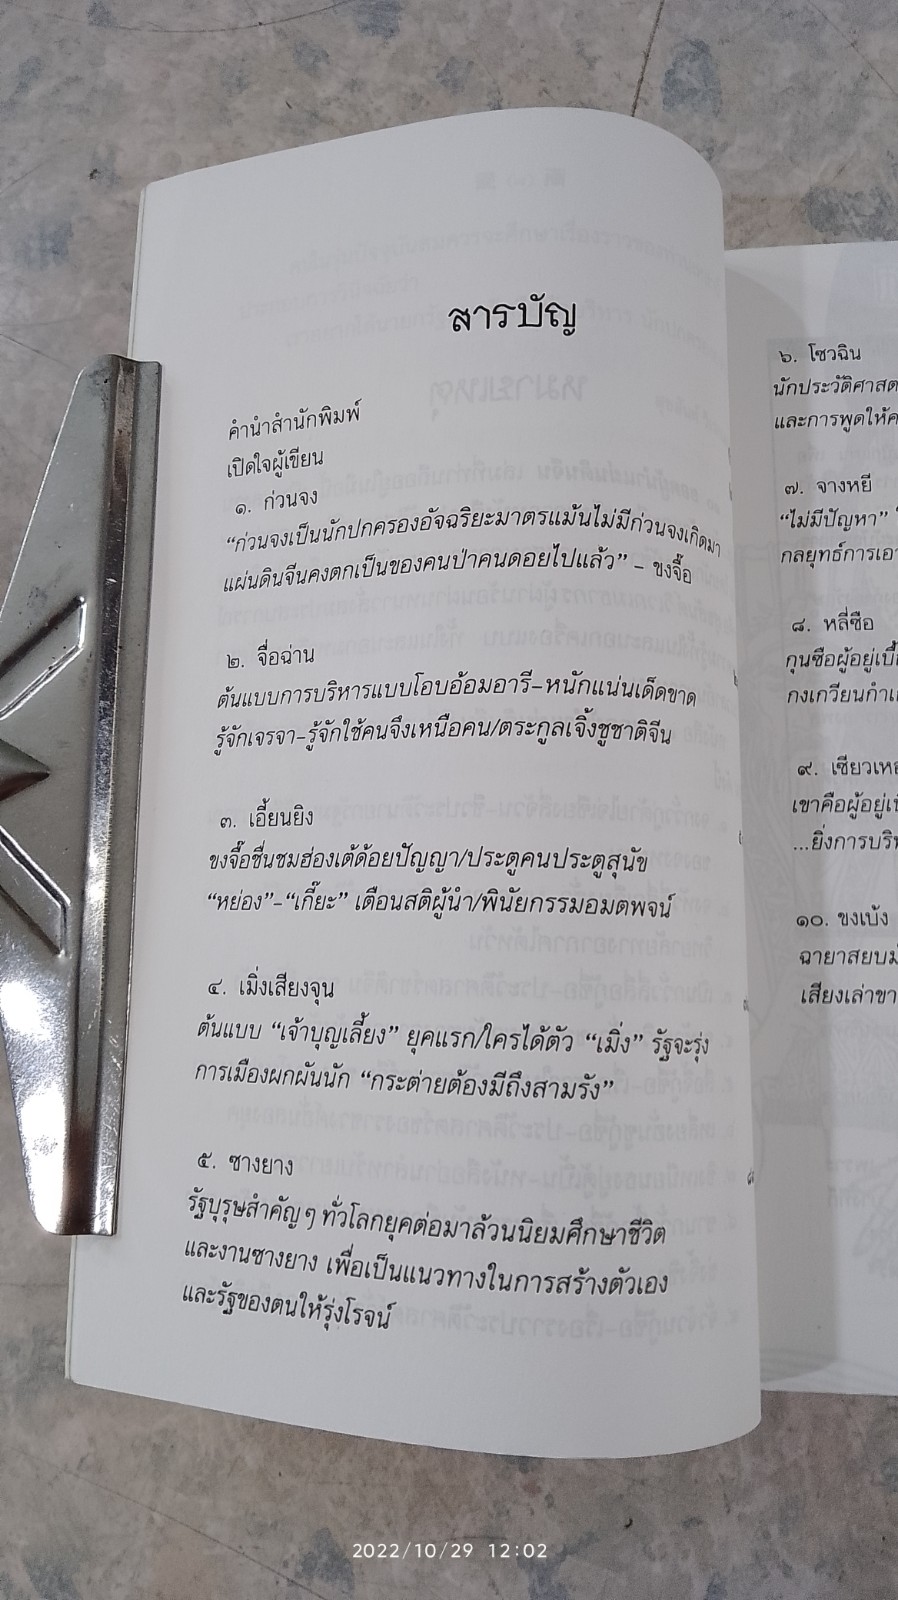 สารบัญ
คำนำสำนักพิมพ์
เปิดใจผู้เขียน
๑. ก่วนจง
“ก่วนจงเป็นนักปกครองอัจฉริยะมาตรแม้นไม่มีก่วนจงเกิดมา
แผ่นดินจีนคงตกเป็นของคนป่าคนดอยไปแล้ว” – ขงจื๊อ
๒. จื่อฉ่าน
ต้นแบบการบริหารแบบโอบอ้อมอารี–หนักแน่นเด็ดขาด
รู้จักเจรจา–รู้จักใช้คนจึงเหนือคน/ตระกูลเจิ้งชูชาติจีน
๓. เอี้ยนยิง
ขงจื๊อชื่นชมฮ่องเต้ด้อยปัญญา/ประตูคนประตูสุนัข
“หย่อง”–“เกี๊ยะ” เตือนสติผู้นำ/พินัยกรรมอมตพจน์
๔. เมิ่งเสียงจุน
ต้นแบบ “เจ้าบุญเลี้ยง” ยุคแรก/ใครได้ตัว “เมิ่ง” รัฐจะรุ่ง
การเมืองผกผันนัก “กระต่ายต้องมีถึงสามรัง”
๕. ซางยาง
รัฐบุรุษสำคัญๆ ทั่วโลกยุคต่อมาล้วนนิยมศึกษาชีวิต
และงานซางยาง เพื่อเป็นแนวทางในการสร้างตัวเอง
และรัฐของตนให้รุ่งโรจน์
๖. โซวฉิน
นักประวัติศาสต
และการพูดให้ค
๗. จางหยี
“ไม่มีปัญหา”
กลยุทธ์การเอา
๘. หลี่ซือ
กุนซือผู้อยู่เบื้
กงเกวียนกำเ
๙. เซียวเห
เขาคือผู้อยู่เบ
...ยิ่งการบริห
๑๐. ขงเบ้ง
ฉายาสยบมั
เสียงเล่าขา
2022/10/29 12:02